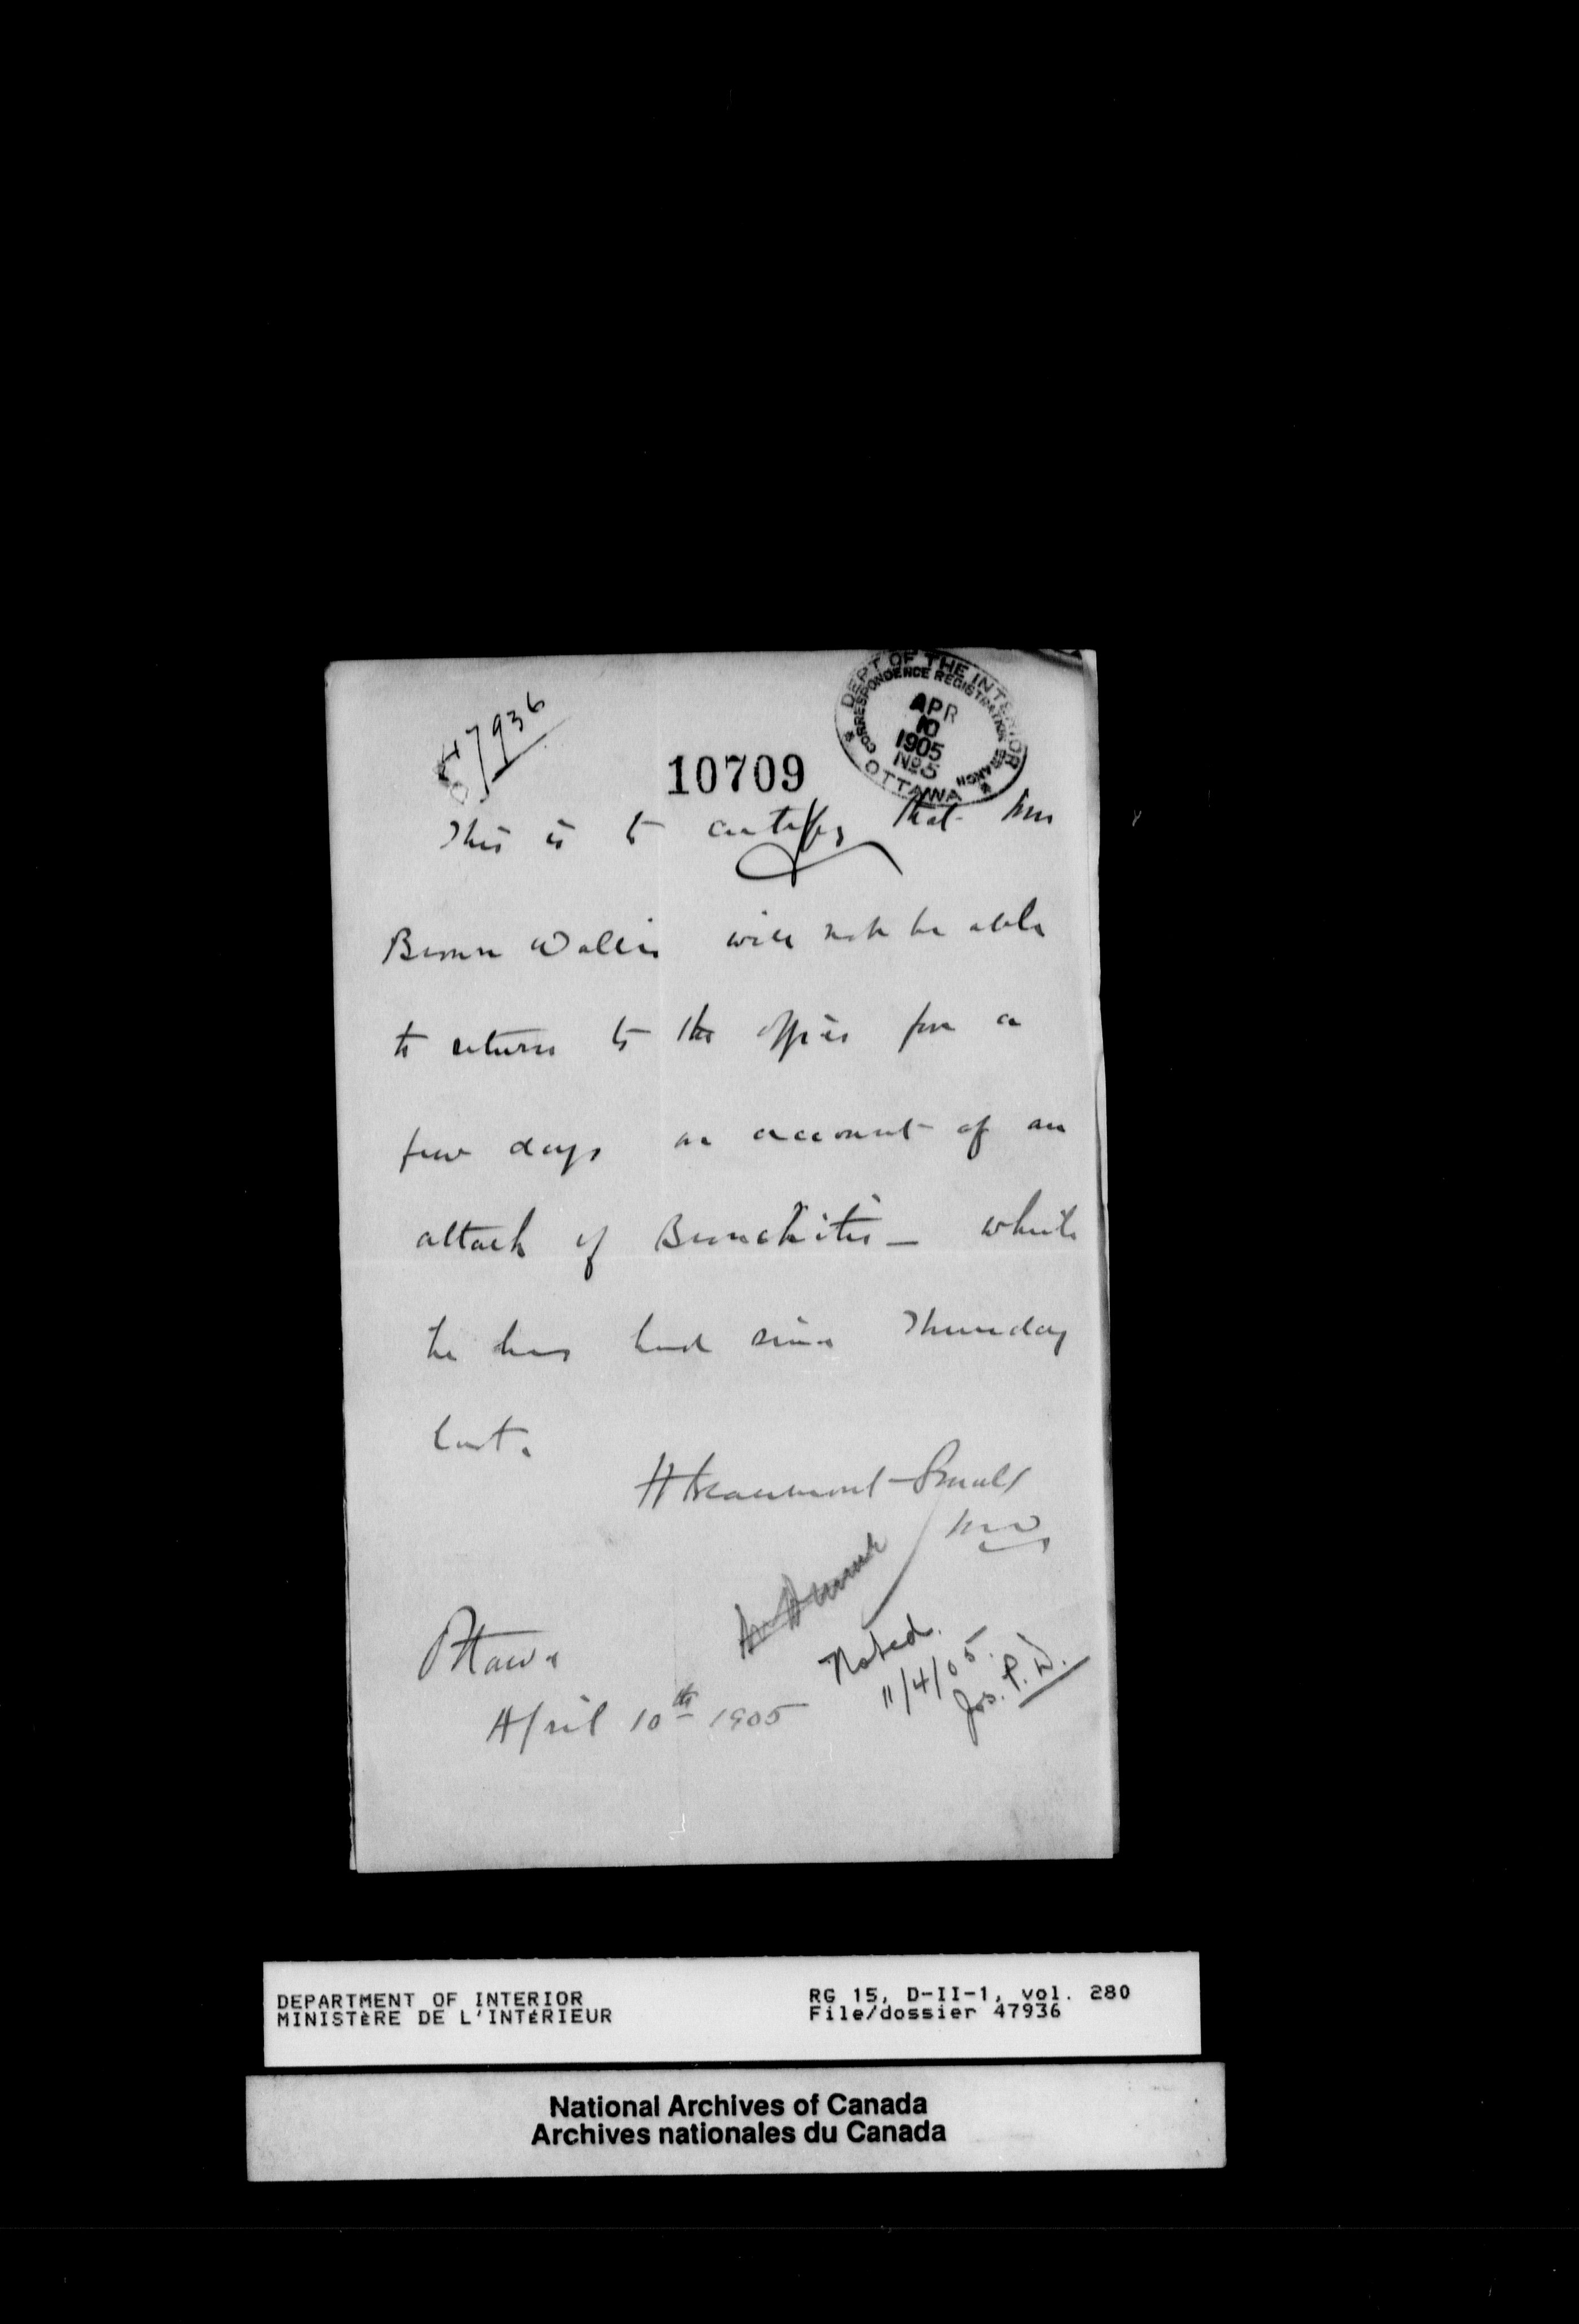 47936
DEPT OF THE INTERIOR
CORRESPONDENCE REGISTRATION BRANCH
APR
10
1905
No 5
OTTAWA
10709
This is to certify that Mr
Brown Wallis will not be able
to return to the office for a
few days on account of an
attack of Bronchitis — which
he has had since Thursday
last.
H Beaumont Small
MD
Noted.
11/4/05.
Jos. P. D.
Ottawa
April 10th 1905
DEPARTMENT OF INTERIOR
MINISTÈRE DE L'INTÉRIEUR
RG 15, D-II-1, vol. 280
File/dossier 47936
National Archives of Canada
Archives nationales du Canada